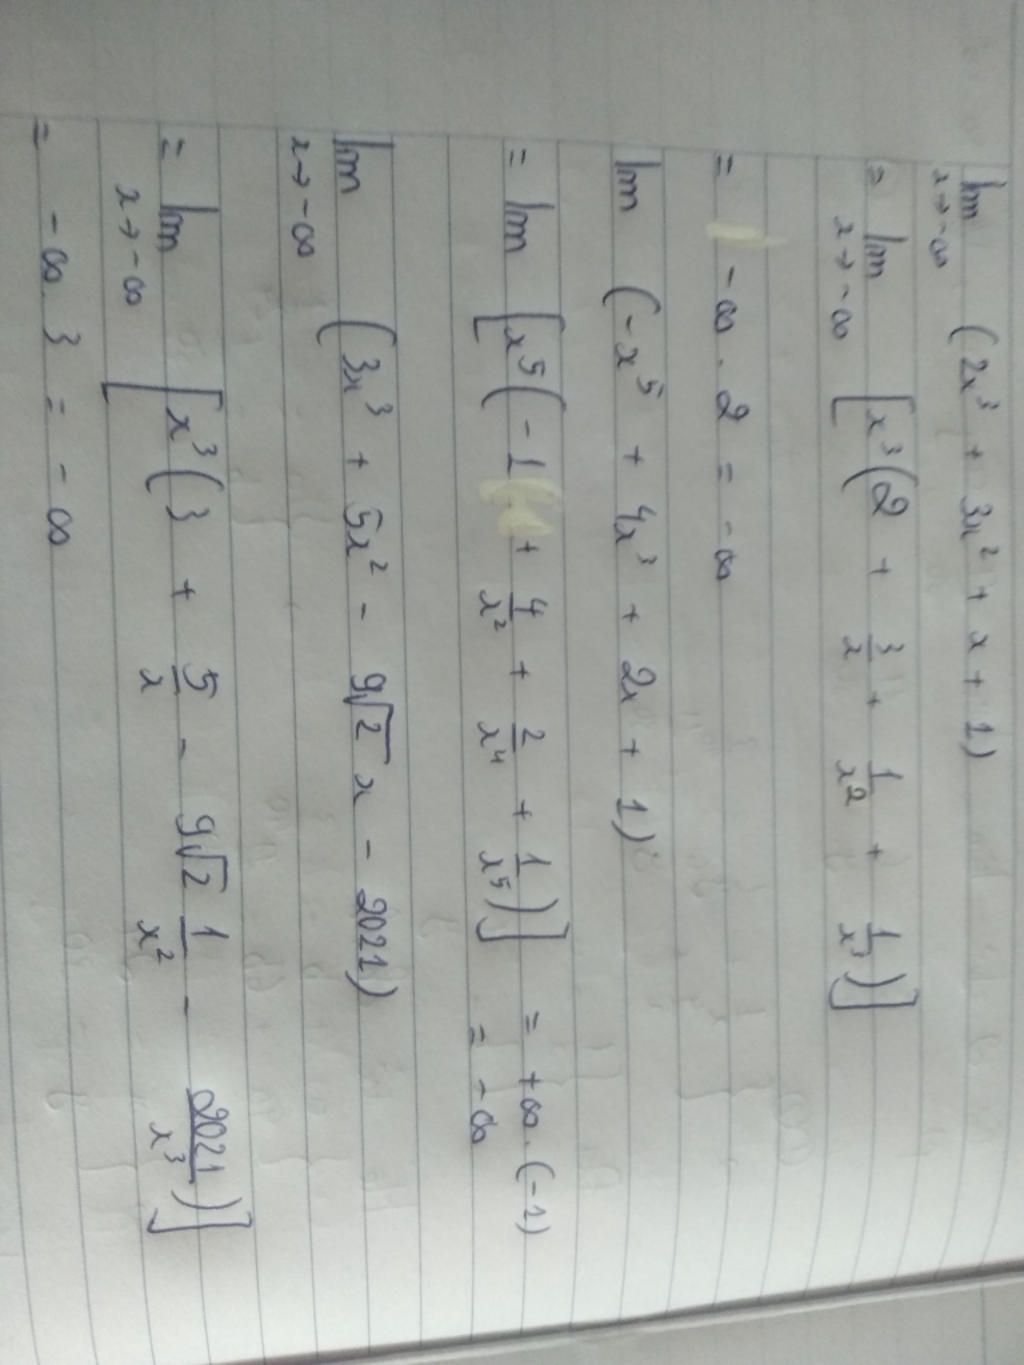 lim (2x³ + 3x² + x + 1)
x→-∞
= lim [x³(2 + 3/x + 1/x² + 1/x³)]
x→-∞
= -∞ . 2 = -∞
lim (-x⁵ + 4x³ + 2x + 1)
= lim [x⁵(-1 + 4/x² + 2/x⁴ + 1/x⁵)] = +∞ . (-1)
= -∞
lim (3x³ + 5x² - 9√2 x - 2021)
x→-∞
= lim [x³(3 + 5/x - 9√2 1/x² - 2021/x³)]
x→-∞
= -∞ . 3 = -∞